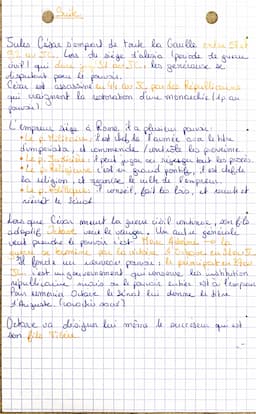 Suite
Jules César s'empart de toute la Gaulle entre 58 et
52 av. JC. Lors du siège d'Alésia (période de guerre
civil) dans JC, les généraux se
disputent pour le pouvoir.
César est assassiné en 44 av JC par des Républicains
qui craignent la restoration d'une monarchie (1p au
pouvoir)
L'empereur siège à Rome il a plusieur pouvoir:
• Le p. Militaire: il est chef de l'armée a le titre
d'imperator, il commende / contrôle les province.
• Le p. Judiciaire: il peut juger ou rejuger tout les procès.
• Le p. Religieux: c'est un grand pontife, il est chef de
la religion, il le culte de l'empereur.
• Le p. Politiques: conseil, fait les lois, il
réunit le Sénat
Lors que César meurt la guerre civil continue, son fils
adoptif Octave veut le venger. Un autre générale
veut prendre le pouvoir c'est Marc Antoine → la
guerre se termine par la victoire d'Octave en 31 av J-
JC. Il fonde un nouveau pouvoir: le principat en 27 av
JC. c'est un gouvernement qui conserve les institution
républicaine mais où le pouvoir entier est à l'empereur
Pour remercier Octave le Sénat lui donne le titre
d'Auguste. (caractère sacré)
Octave va désigner lui même le successeur qui est
son fils Tibère.